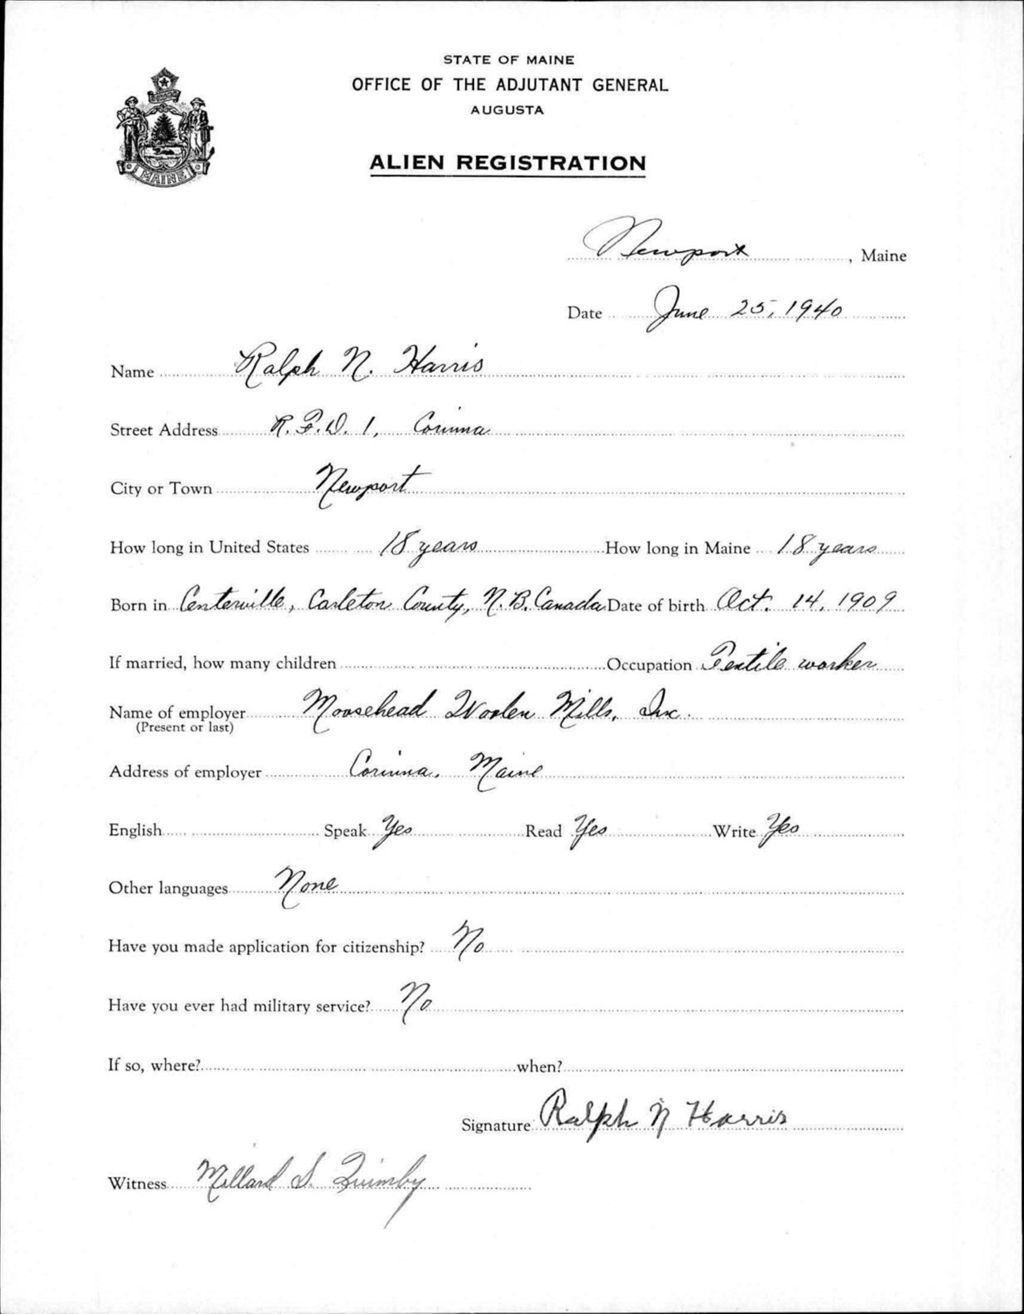 STATE OF MAINE
OFFICE OF THE ADJUTANT GENERAL
AUGUSTA
ALIEN REGISTRATION
MAINE
Newport, Maine
Date June 25, 1940
Name Ralph N. Harris
Street Address R.F.D. 1, Corinna
City or Town Newport
How long in United States 18 years How long in Maine 18 years
Born in Centerville, Carleton County, N.B. Canada Date of birth Oct. 14, 1909
If married, how many children Occupation Textile worker
Name of employer Moosehead Woolen Mills, Inc.
(Present or last)
Address of employer Corinna, Maine
English Speak Yes Read Yes Write Yes
Other languages None
Have you made application for citizenship? No
Have you ever had military service? No
If so, where? when?
Signature Ralph N Harris
Witness Millard S. Quimby